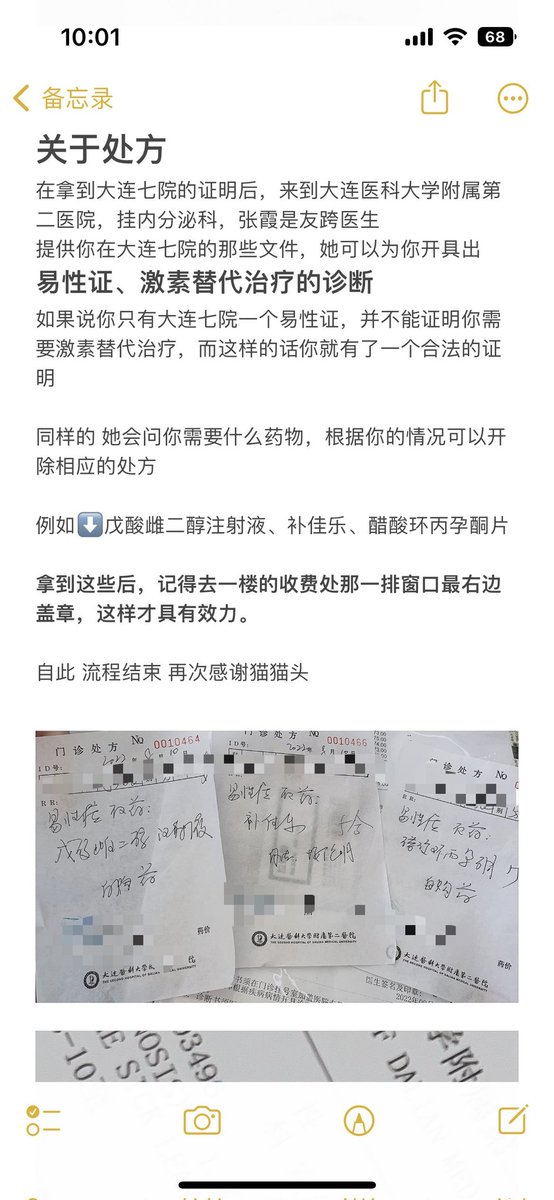 10:01
68
备忘录
关于处方
在拿到大连七院的证明后，来到大连医科大学附属第
二医院，挂内分泌科，张霞是友跨医生
提供你在大连七院的那些文件，她可以为你开具出
易性证、激素替代治疗的诊断
如果说你只有大连七院一个易性证，并不能证明你需
要激素替代治疗，而这样的话你就有了一个合法的证
明
同样的 她会问你需要什么药物，根据你的情况可以开
除相应的处方
例如⬇️戊酸雌二醇注射液、补佳乐、醋酸环丙孕酮片
拿到这些后，记得去一楼的收费处那一排窗口最右边
盖章，这样才具有效力。
自此 流程结束 再次感谢猫猫头
门诊处方 No 0010464
ID号:
易性症 取药:
戊酸雌二醇注射液
自购药
药价
大连医科大学 院
门诊处方 No 0010466
ID号: 2022年
易性症 取药:
补佳乐 5盒
药价
大连医科大学附属第二医院
THE SECOND HOSPITAL OF DALIAN MEDICAL UNIVERSITY
门诊处方 No
易性症 取药:
自购药
药价
大连医科大学附属第二医院
THE SECOND HOSPITAL OF DALIAN MEDICAL UNIVERSITY
医生签名及印章:
03498
NOSIS
-10
学附
F DA